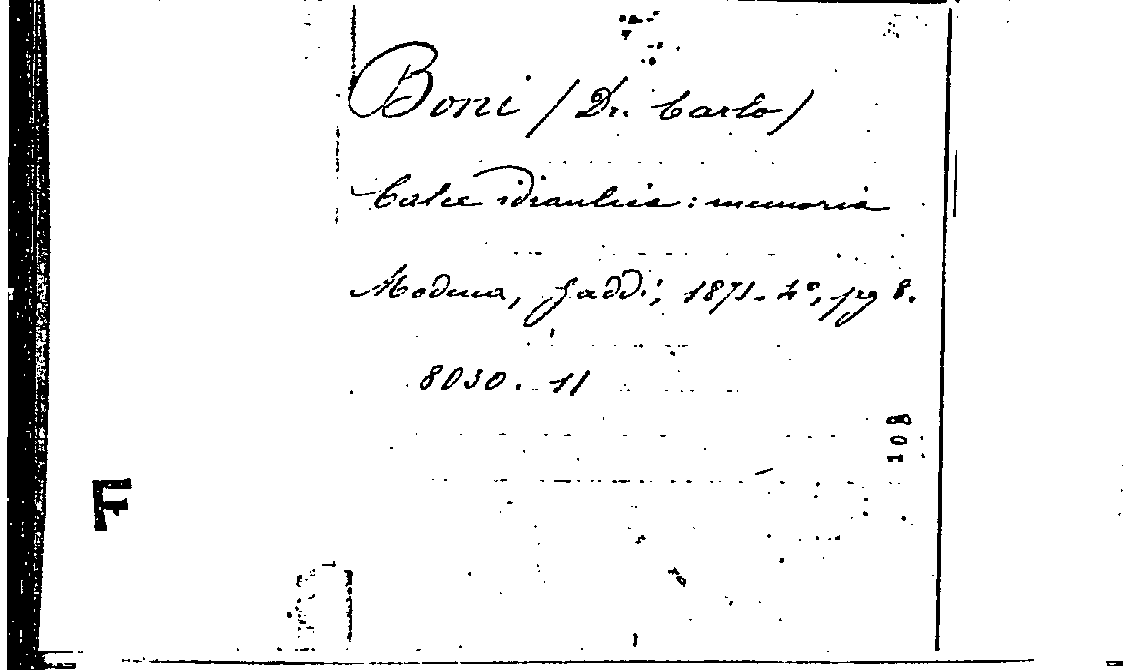 Boni (Dr. Carlo)
Calce idraulica: memoria
Modena, Gaddi, 1871. 4°, pg 8.
8030. 11
108
F